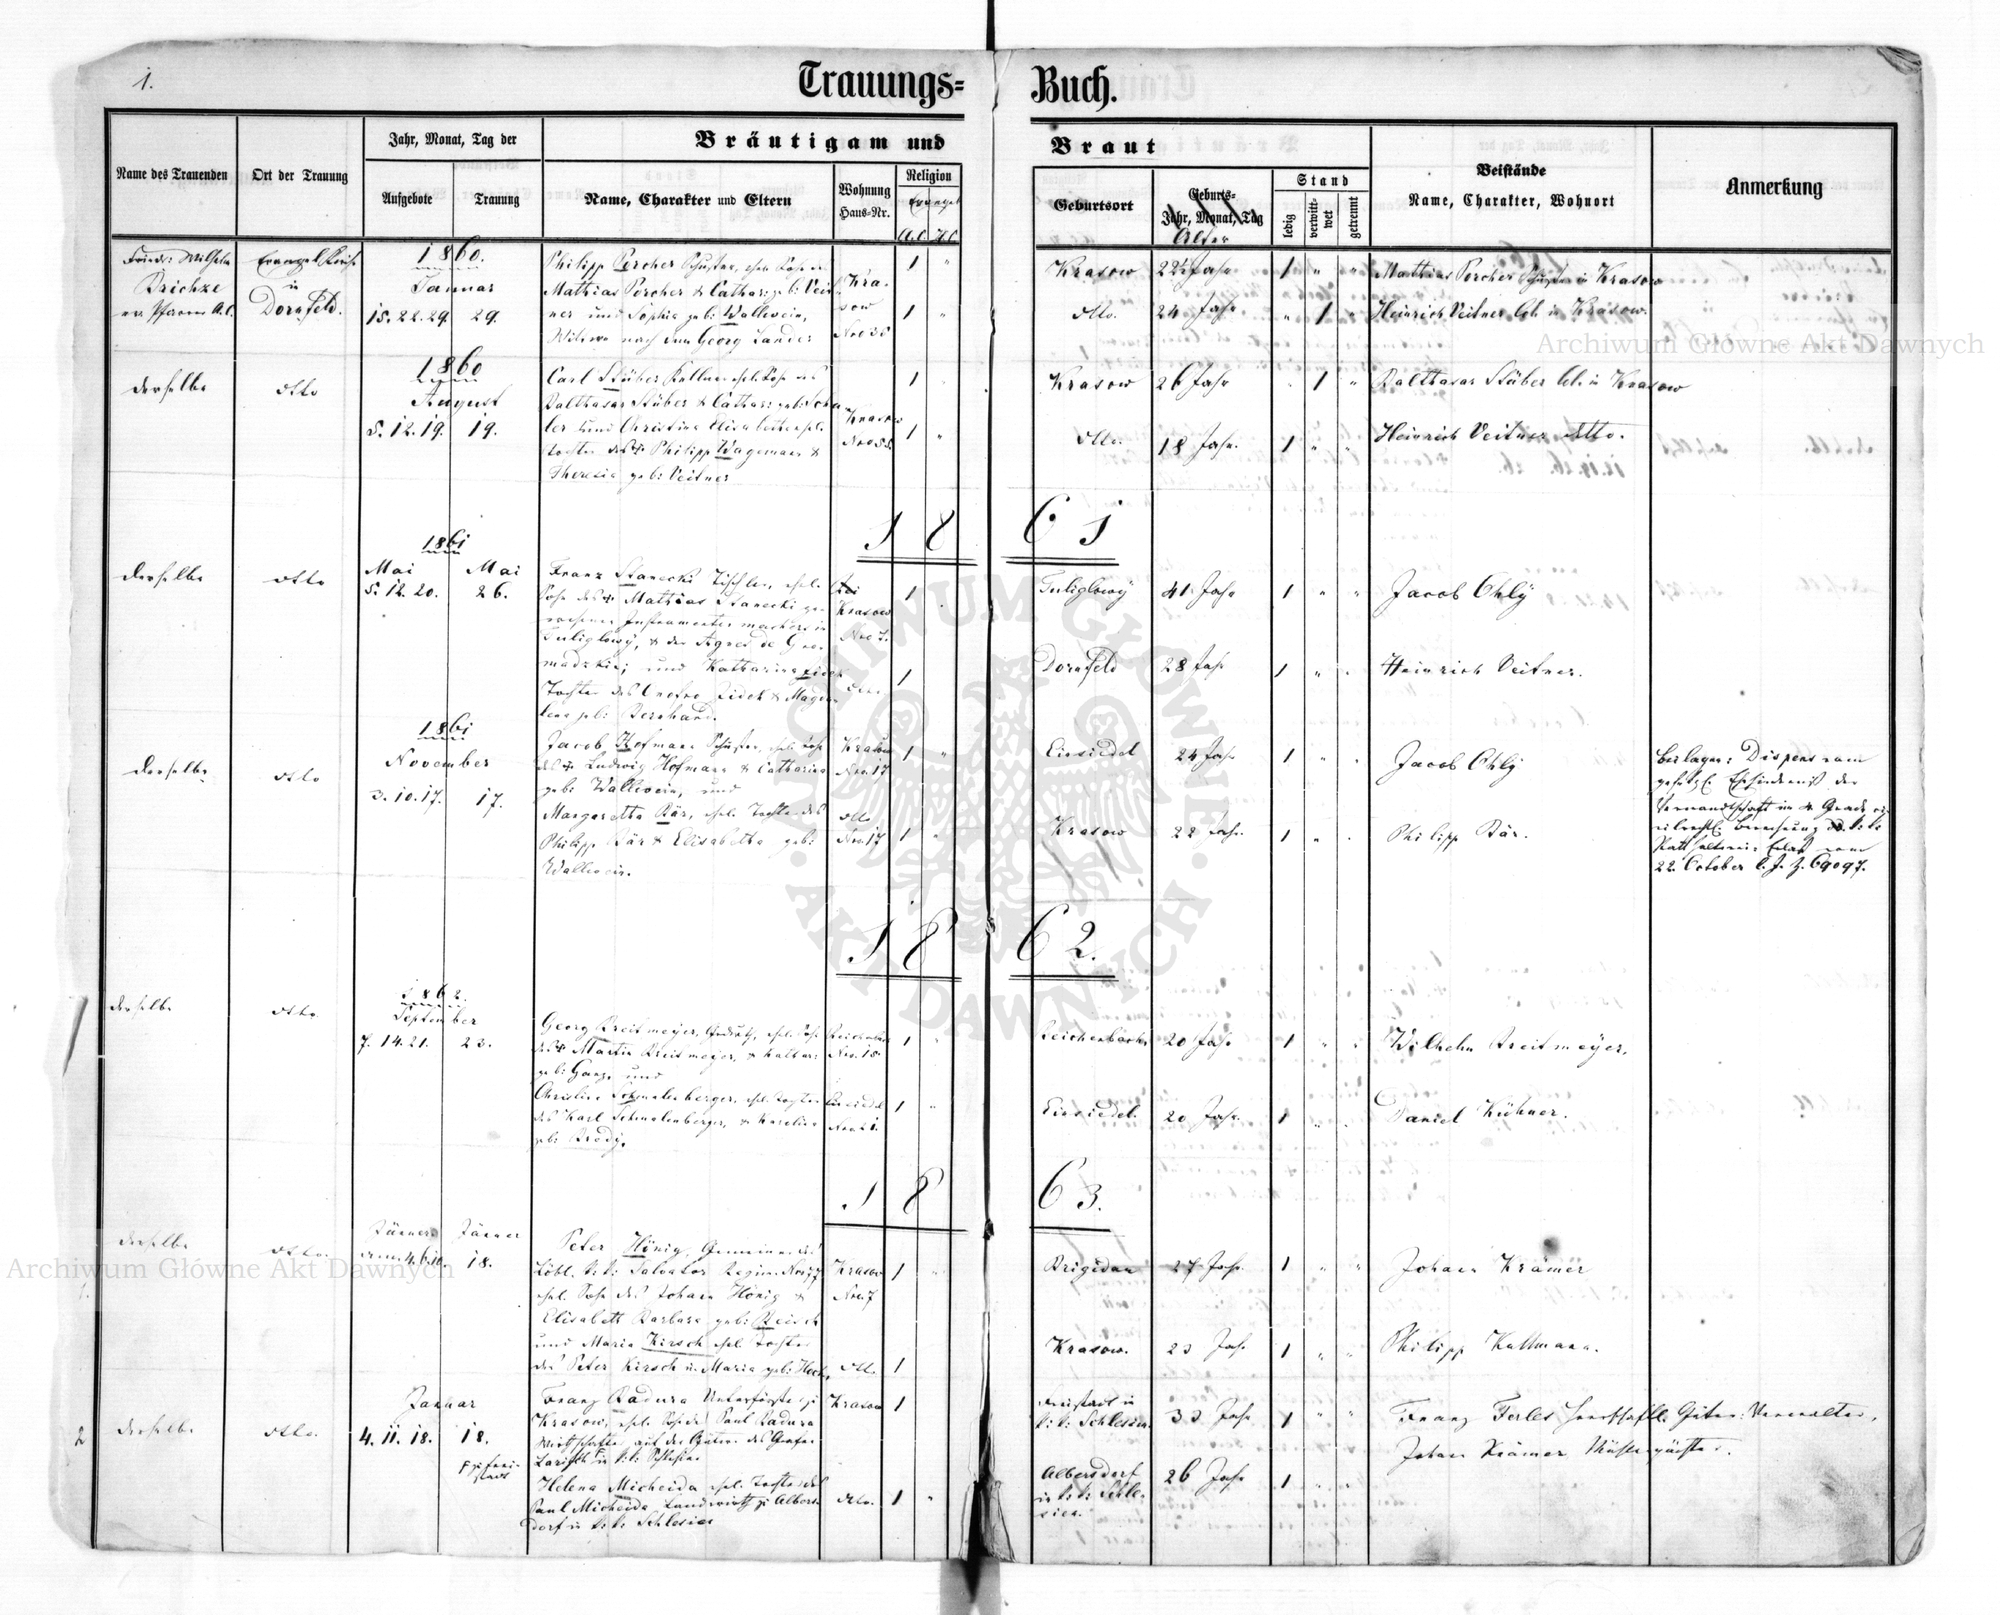 1.
Trauungs= Buch.
Name des Trauenden
Ort der Trauung
Jahr, Monat, Tag der
Aufgebote
Trauung
Bräutigam und Braut
Name, Charakter und Eltern
Wohnung
Haus=Nr.
Religion
Evangel
A.C. H.C.
Geburtsort
Geburts=
Jahr, Monat, Tag
Alter
Stand
ledig
verwitt=
wet
getrennt
Beistände
Name, Charakter, Wohnort
Anmerkung
Friedr: Wilhelm
Brichze
ev. Pfarrer A.C.
Evangel. Kirche
in
Dornfeld.
1860.
Januar
15. 22. 29. 29.
Philipp Porcher Schuster, ehel. Sohn des
Mathias Porcher & Cathar: geb: Veit
ner und Sophia geb: Wallwein,
Witwe nach dem Georg Lander
Kra
sow
1 "
1 "
Krasow 22½ Jahr 1 " " Mathias Porcher Schuster in Krasow
dtto. 24 Jahr " 1 " Heinrich Veitner in Krasow.
derselbe dtto
1860
August
5. 12. 19. 19.
Carl Stüber ehel. Sohn des
Balthasar Stüber & Cathar: geb: Schu
ler und Christina Elisabetha ehel.
Tochter des Philipp Wagemann &
Theresia geb: Veitner
Krasow
1
1 "
Krasow 26 Jahr 1 " Balthasar Stüber in Krasow
dtto. 18 Jahr. 1 " " Heinrich Veitner dtto.
1861
derselbe dtto
1861
Mai Mai
5. 12. 20. 26.
Franz Stanecki Tischler, ehel.
Sohn des Mathias Stanecki ge
wesener Instrumentenmachers in
Tuliglowy, & der Agnes de Gro
madzkie; und Katharina Zidek
Tochter des Onofre Zidek & Magda
lena geb: Bernhard.
Krasow
dtto.
1
1
Tuliglowy 41 Jahr 1 " " Jacob Ohly
Dornfeld 28 Jahr 1 " " Heinrich Veitner.
derselbe dtto
1861
November
3. 10. 17. 17.
Jacob Hofmann Schuster, ehel. Sohn
des Ludwig Hofmann & Catharina
geb: Wallwein, und
Margaretha Bär, ehel. Tochter des
Philipp Bär & Elisabetha geb:
Wallwein.
Krasow
Nro. 17
dtto
Nro. 17
1 "
1 "
Einsiedel 24 Jahr 1 " Jacob Ohly
Krasow 22 Jahr. 1 " " Philipp Bär.
Beilagen: Dispens vom
gesetzl: Ehehinderniß der
Verwandtschaft im 4. Grade
Berechnung k: k:
Statthalterei: Erlaß vom
22. October l. J. Z. 69097.
1862.
derselbe dtto.
1862.
September
7. 14. 21. 23.
Georg Breitmeyer, ehel. Sohn
des Martin Breitmeyer, & Kathar:
geb: Ganz und
Christine Schmalenberger, ehel. Tochter
des Karl Schmalenberger, & Karolina
geb: Bredy.
Reichenbach
Nro. 18.
Einsiedel
1 "
1 "
Reichenbach 20 Jahr 1 " " Wilhelm Breitmeyer.
Einsiedel. 20 Jahr. 1 " " Daniel Kühner.
1863.
derselbe dtto.
Jänner Jänner
4. 6. 10. 18.
Peter Hönig, Gemeiner des
Löbl. k: k: Salvator Regim. Nro. 77
ehel. Sohn des Johann Hönig &
Elisabeth Barbara geb: Reisch
und Maria Kirsch ehel. Tochter
des Peter Kirsch u. Maria geb: Hoch.
Krasow
Nro. 7
dtto.
1 "
1
Brigidau 27 Jahr. 1 " " Johann Krämer
Krasow. 23 Jahr 1 " " Philipp Kullmann.
2 derselbe dtto.
Januar
4. 11. 18. 18.
Franz Badura Unterförster zu
Krasow, ehel. Sohn des Paul Badura
Wirthschafter auf den Gütern des Grafen
Larisch in k: k: Schlesien
Helena Micheida ehel. Tochter des
Paul Micheida, Landwirth zu Albers
dorf in k: k: Schlesien
Krasow
dtto.
1
1 "
Freistadt in
k: k: Schlesien. 33 Jahr 1 " " Franz Ferles herrschaftl. Güter: Verwalter,
Johann Krämer Mühlenpächter.
Albersdorf
in k: k: Schle-
sien. 26 Jahr 1 " "
Archiwum Główne Akt Dawnych
Archiwum Główne Akt Dawnych
ARCHIWUM GŁÓWNE
AKT DAWNYCH